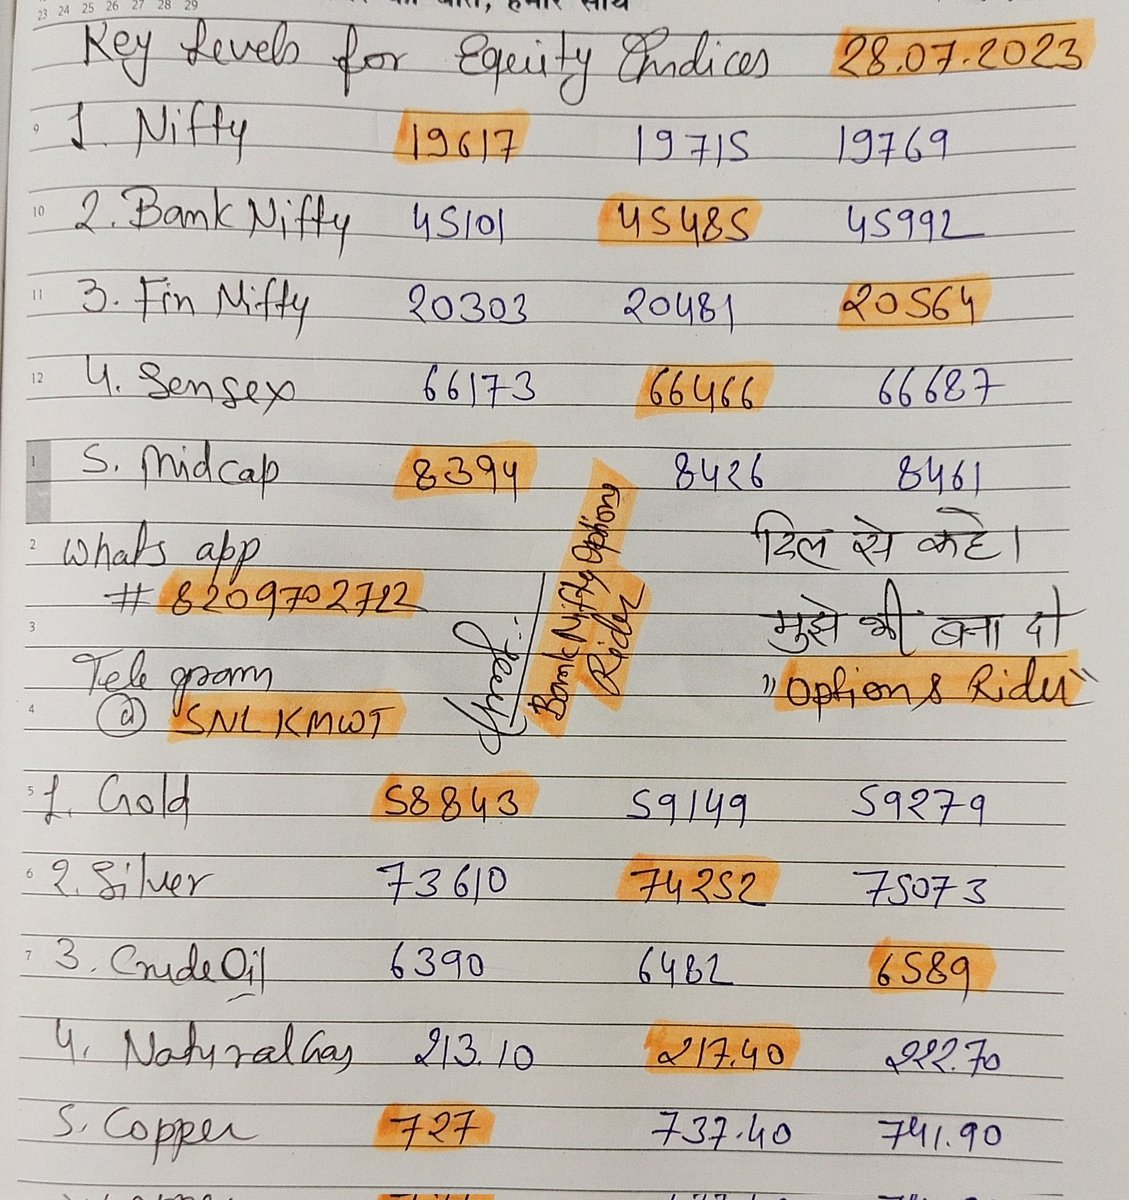 23 24 25 26 27 28 29
Key Levels for Equity Indices 28.07.2023
9 1. Nifty 19617 19715 19769
10 2. Bank Nifty 45101 45485 45992
11 3. Fin Nifty 20303 20481 20564
12 4. Sensex 66173 66466 66687
1 5. Midcap 8394 8426 8461
2 Whats app
# 8209702722
3
Tele gram
4 @ SNL KMWT
Bank Nifty Options
Rider
दिल से कहे।
मुझे भी बना दो
"Options Rider"
5 1. Gold 58843 59149 59279
6 2. Silver 73610 74252 75073
7 3. Crude Oil 6390 6482 6589
4. Natural Gas 213.10 217.40 222.70
5. Copper 727 737.40 741.90